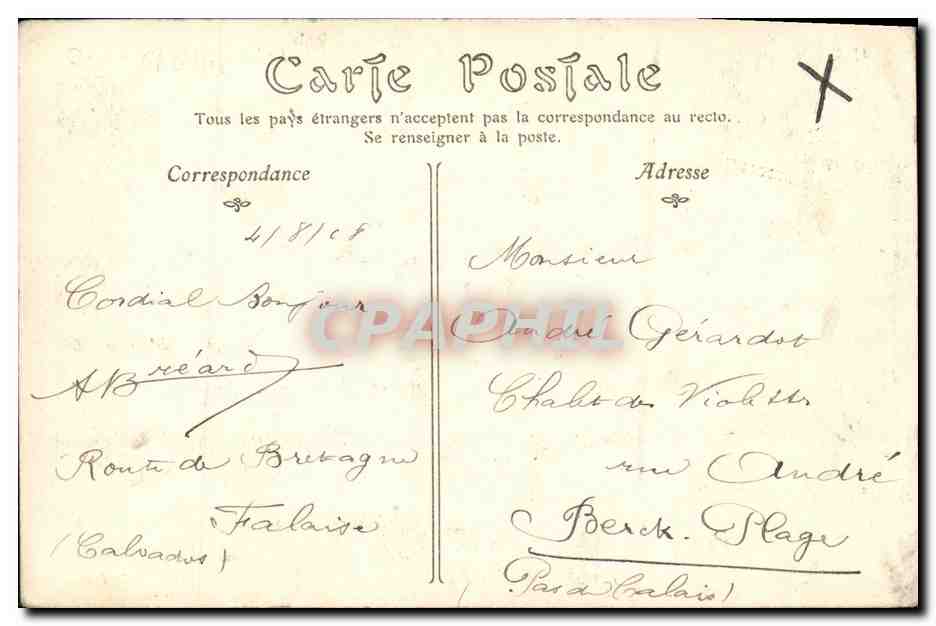 Carte Postale
Tous les pays étrangers n'acceptent pas la correspondance au recto.
Se renseigner à la poste.
Correspondance
4/8/08
Cordial Bonjour
ABréard
Route de Bretagne
Falaise
(Calvados)
Adresse
Monsieur
André Gérardot
Chalet des Violettes
rue André
Berck-Plage
(Pas de Calais)
CPAPHIL